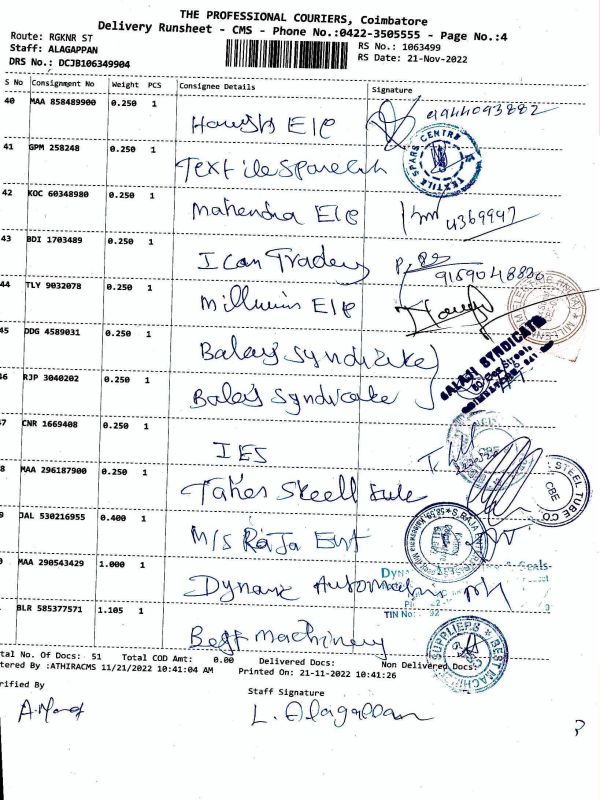 THE PROFESSIONAL COURIERS, Coimbatore
Delivery Runsheet - CMS - Phone No.:0422-3505555 - Page No.:4
Route: RGKNR ST
Staff: ALAGAPPAN
DRS No.: DCJB106349904
RS No.: 1063499
RS Date: 21-Nov-2022
S No Consignment No Weight PCS Consignee Details Signature
40 MAA 858489900 0.250 1 Ele
41 GPM 258248 0.250 1 Textile
TEXTILE SPARS CENTRE
42 KOC 60348980 0.250 1 Mahendra Ele 4369947
43 BDI 1703489 0.250 1 Ican Traders
44 TLY 9032078 0.250 1 Ele
45 DDG 4589031 0.250 1 Balaji Syndicate
BALAJI SYNDICATE
46 RJP 3040202 0.250 1 Balaji Syndicate
47 CNR 1669408 0.250 1 IES
CBE
8 MAA 296187900 0.250 1
STEEL TUBE CO
CBE
9 JAL 530216955 0.400 1 M/s Raja Ent
MAA 290543429 1.000 1
TIN No
BLR 585377571 1.105 1 Best Machinery
SUPPLIERS * BEST MACHIN
tal No. Of Docs: 51 Total COD Amt: 0.00 Delivered Docs: Non Delivered Docs:
tered By :ATHIRACMS 11/21/2022 10:41:04 AM Printed On: 21-11-2022 10:41:26
rified By Staff Signature
L. Alagappan